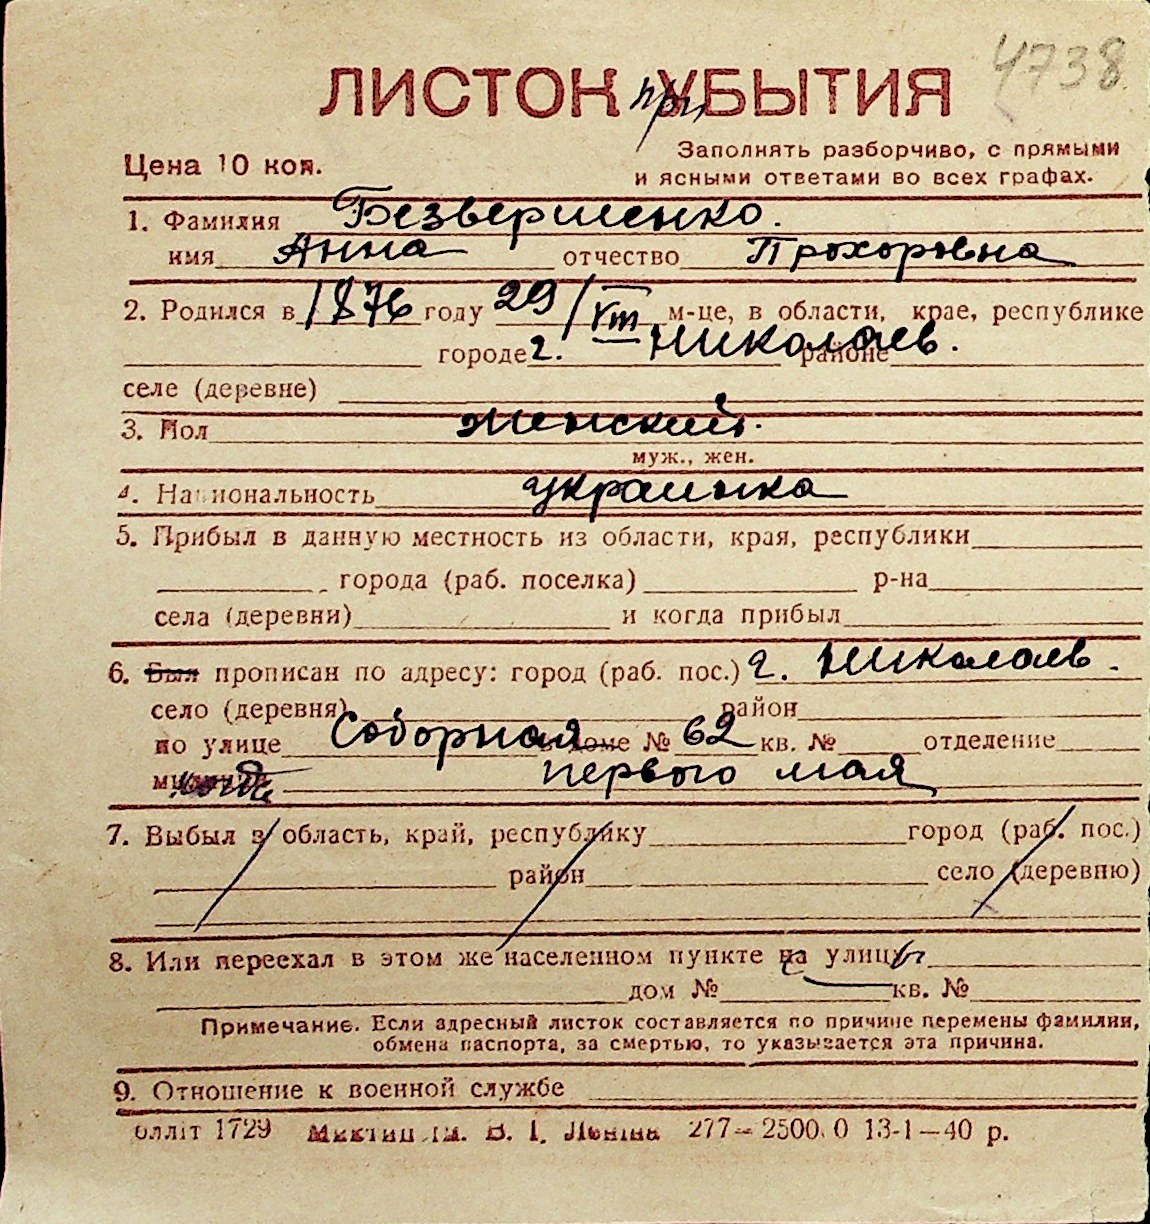 4738
ЛИСТОК при УБЫТИЯ
Цена 10 коп.
Заполнять разборчиво, с прямыми
и ясными ответами во всех графах.
1. Фамилия Безвершенко.
имя Анна отчество Прохоровна
2. Родился в 1876 году 29/VIII м-це, в области, крае, республике
городе г. Николаев. районе
селе (деревне)
3. Пол женский.
муж., жен.
4. Национальность украинка
5. Прибыл в данную местность из области, края, республики
города (раб. поселка) р-на
села (деревни) и когда прибыл
6. Был прописан по адресу: город (раб. пос.) г. Николаев.
село (деревня) район
по улице Соборная в доме № 62 кв. № отделение
первого мая
7. Выбыл в область, край, республику город (раб. пос.)
район село (деревню)
8. Или переехал в этом же населенном пункте на улицу
дом № кв. №
Примечание. Если адресный листок составляется по причине перемены фамилии,
обмена паспорта, за смертью, то указывается эта причина.
9. Отношение к военной службе
олліт 1729 ім. В. І. Леніна 277—2500.0 13-1—40 р.